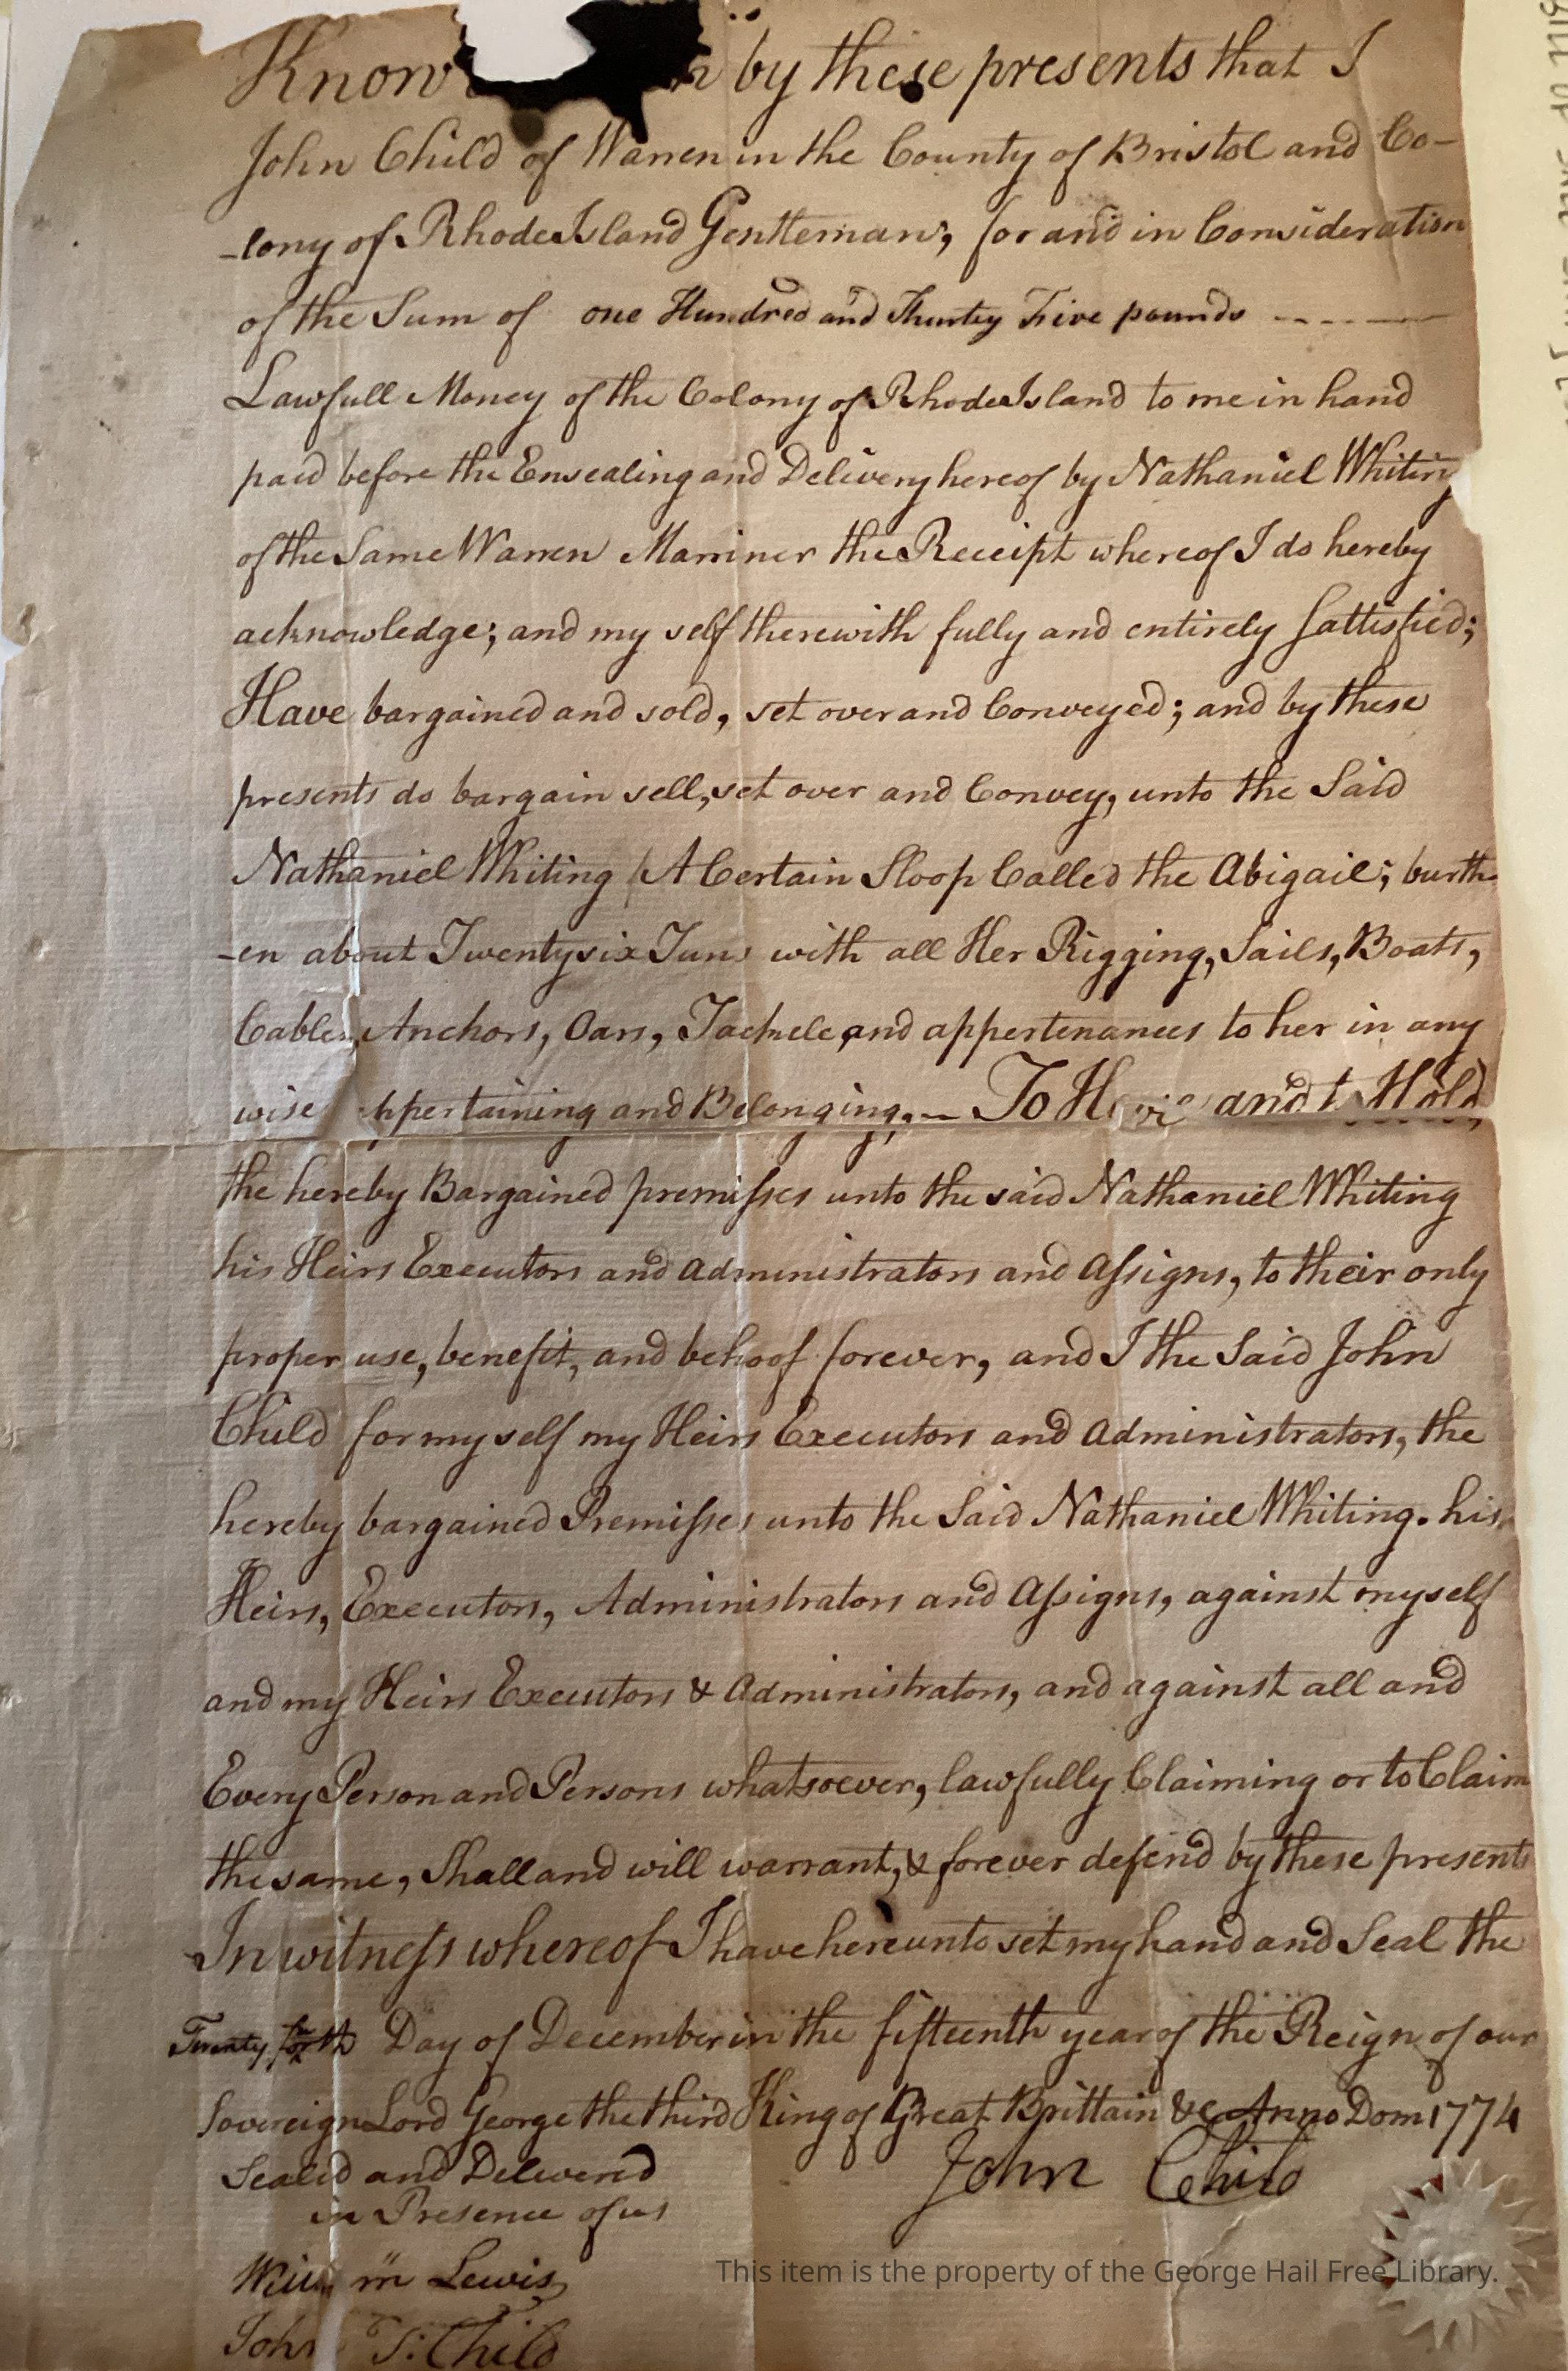 Know by these presents that I
John Child of Warren in the County of Bristol and Co-
-lony of Rhode Island Gentleman; for and in Consideration
of the Sum of one Hundred and Thurtey Five pounds
Lawfull Money of the Colony of Rhode Island to me in hand
paid before the Ensealing and Delivery hereof by Nathaniel Whiting
of the Same Warren Marriner the Receipt whereof I do hereby
acknowledge; and my self therewith fully and entirely Sattisfied;
Have bargained and sold, set over and Conveyed; and by these
presents do bargain sell, set over and Convey, unto the Said
Nathaniel Whiting A Certain Sloop Called the Abigail; burth-
-en about Twenty six Tuns with all Her Rigging, Sails, Boats,
Cables, Anchors, Oars, Tackele, and appertenances to her in any
wise appertaining and Belonging, — To Have and to Hold,
the hereby Bargained premisses unto the said Nathaniel Whiting
his Heirs Executors and Administrators and Assigns, to their only
proper use, benefit, and behoof forever, and I the Said John
Child for my self my Heirs Executors and Administrators, the
hereby bargained Premisses unto the Said Nathaniel Whiting. his
Heirs, Executors, Administrators and Assigns, against myself
and my Heirs Executors & Administrators, and against all and
Every Person and Persons whatsoever, lawfully Claiming or to Claim
the same, Shall and will warrant, & forever defend by these presents
In witness whereof I have hereunto set my hand and Seal the
Twenty Day of December in the fifteenth year of the Reign of our
Sovereign Lord George the third King of Great Brittain &c Anno Dom 1774
Sealed and Delivered
in Presence of us
John Child
William Lewis
John T: Child
This item is the property of the George Hail Free Library.